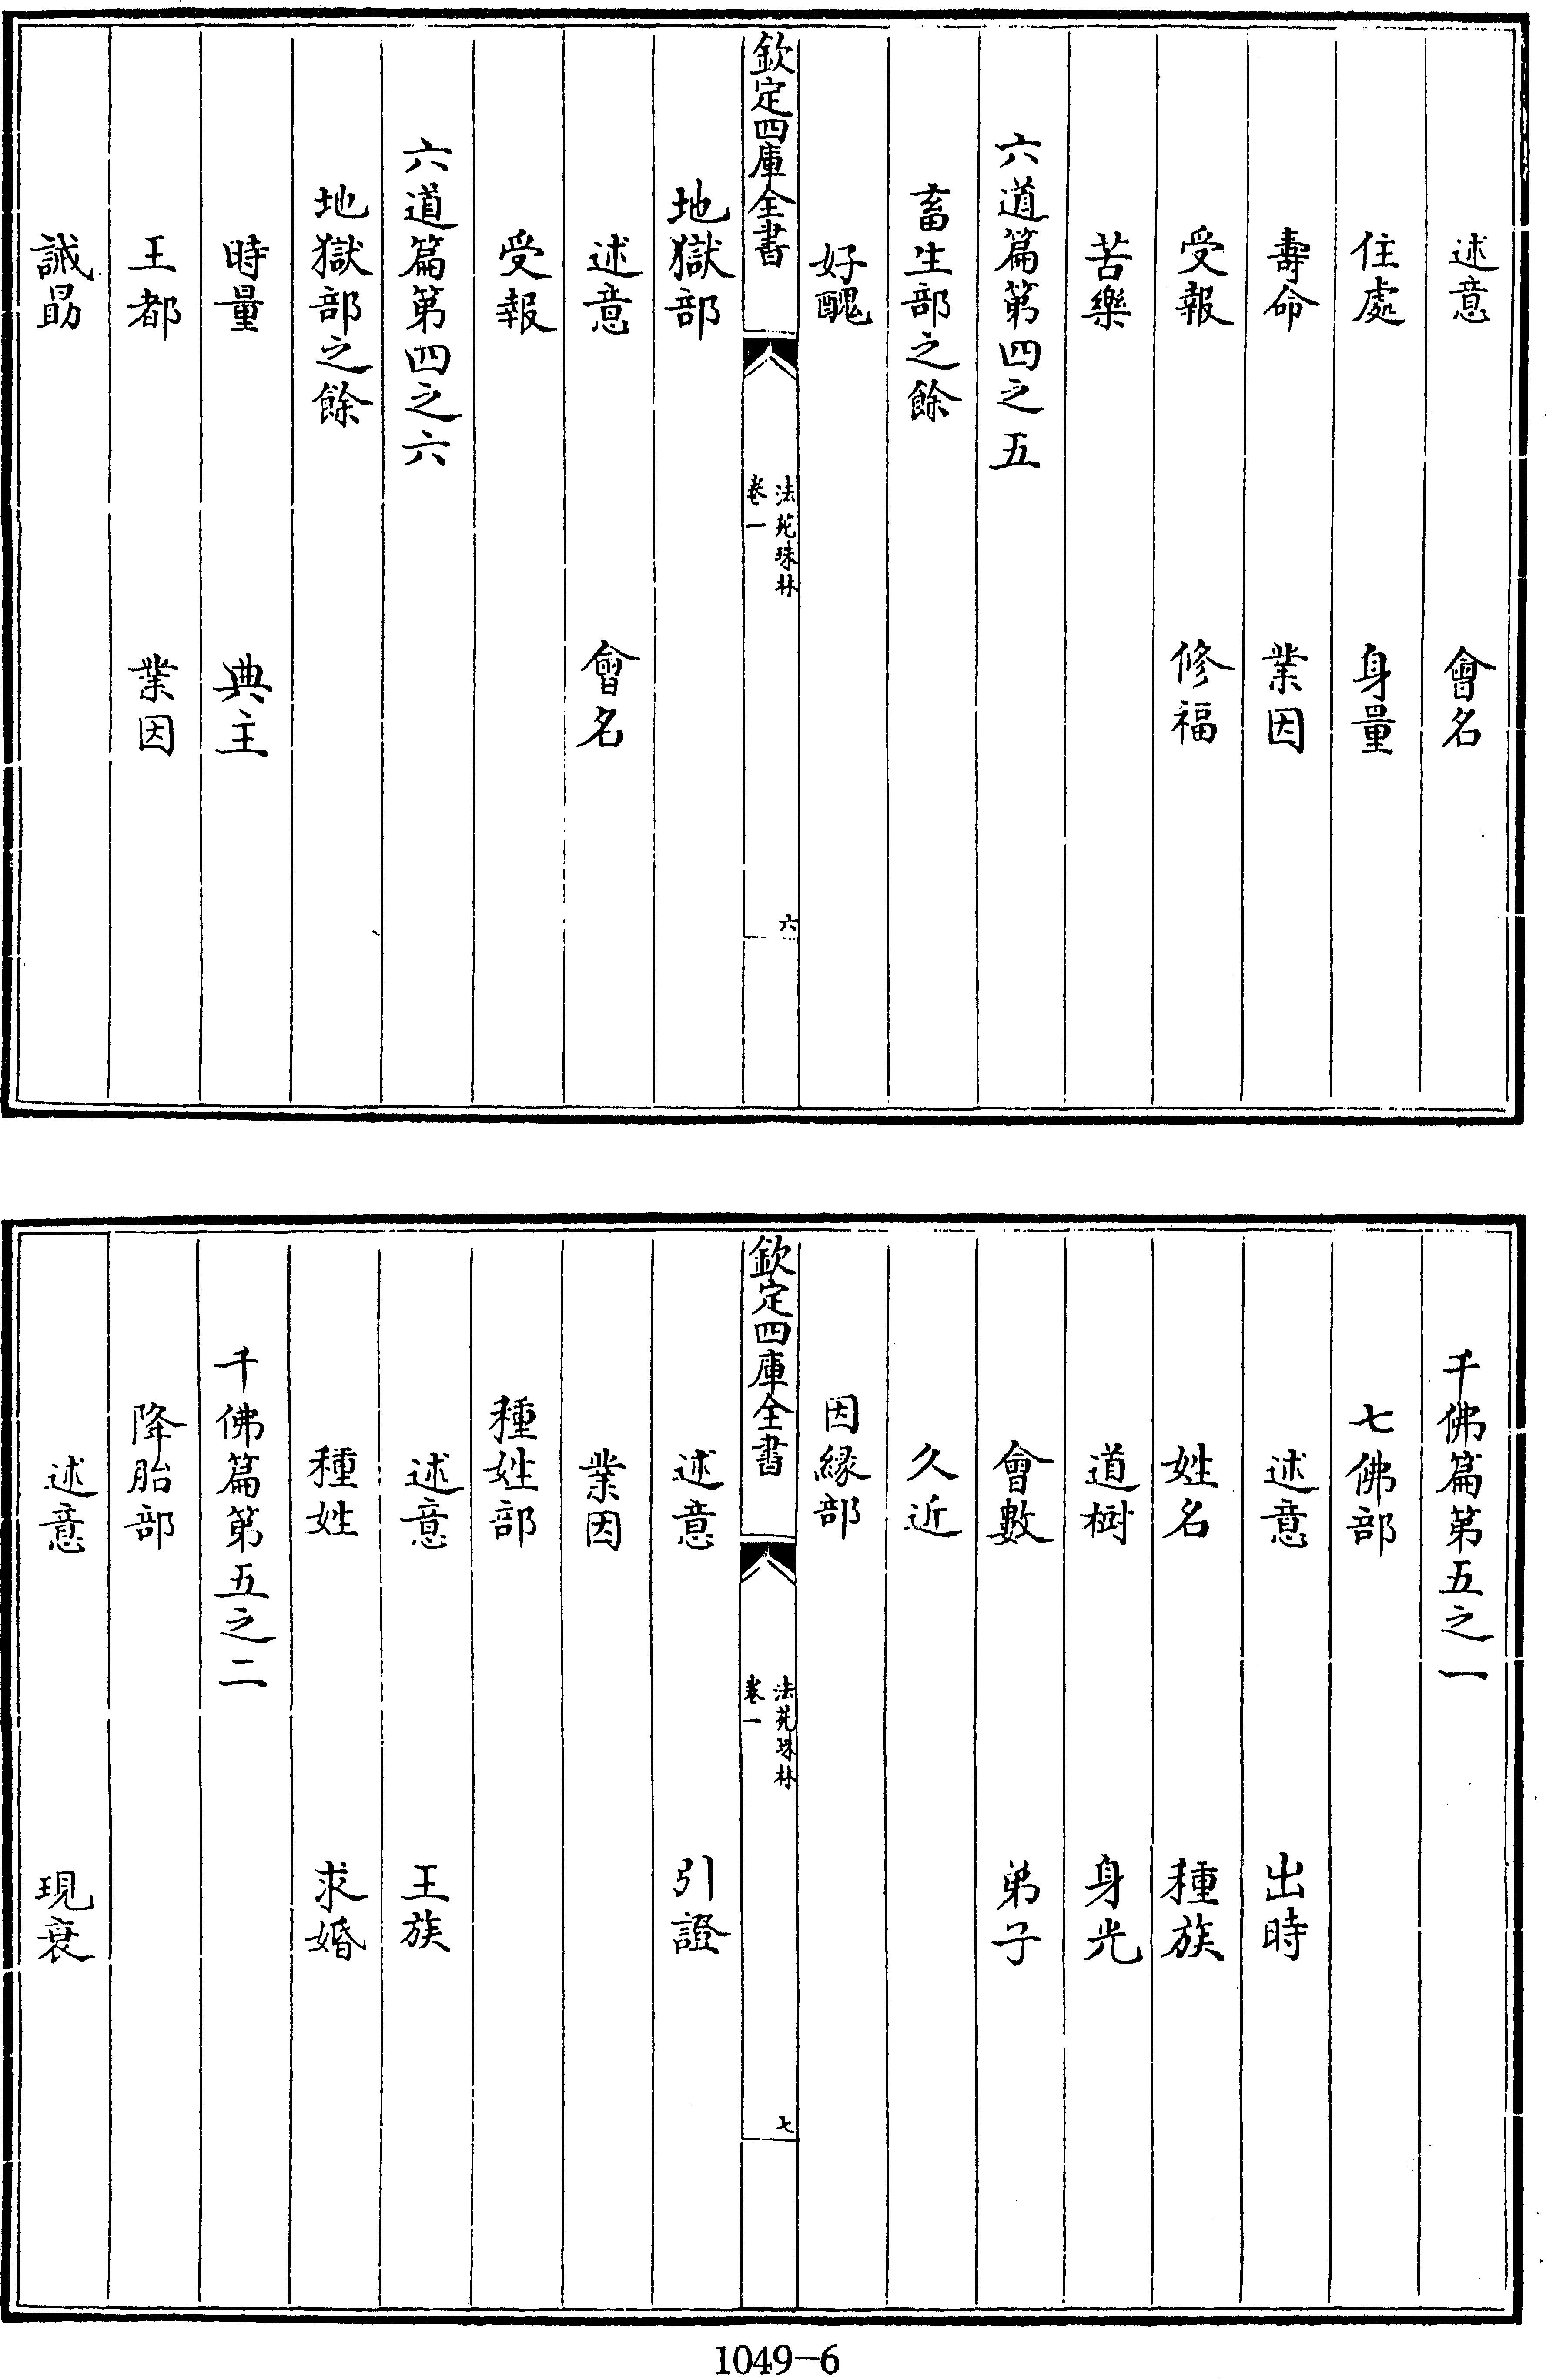 述意　會名
住處　身量
壽命　業因
受報　修福
苦樂
六道篇第四之五
畜生部之餘
好醜
欽定四庫全書　法苑珠林　卷一　六
地獄部
述意　會名
受報
六道篇第四之六
地獄部之餘
時量　典主
王都　業因
誡勗
千佛篇第五之一
七佛部
述意　出時
姓名　種族
道樹　身光
會數　弟子
久近
因緣部
欽定四庫全書　法苑珠林　卷一　七
述意　引證
業因
種姓部
述意　王族
種姓　求婚
千佛篇第五之二
降胎部
述意　現衰
1049-6